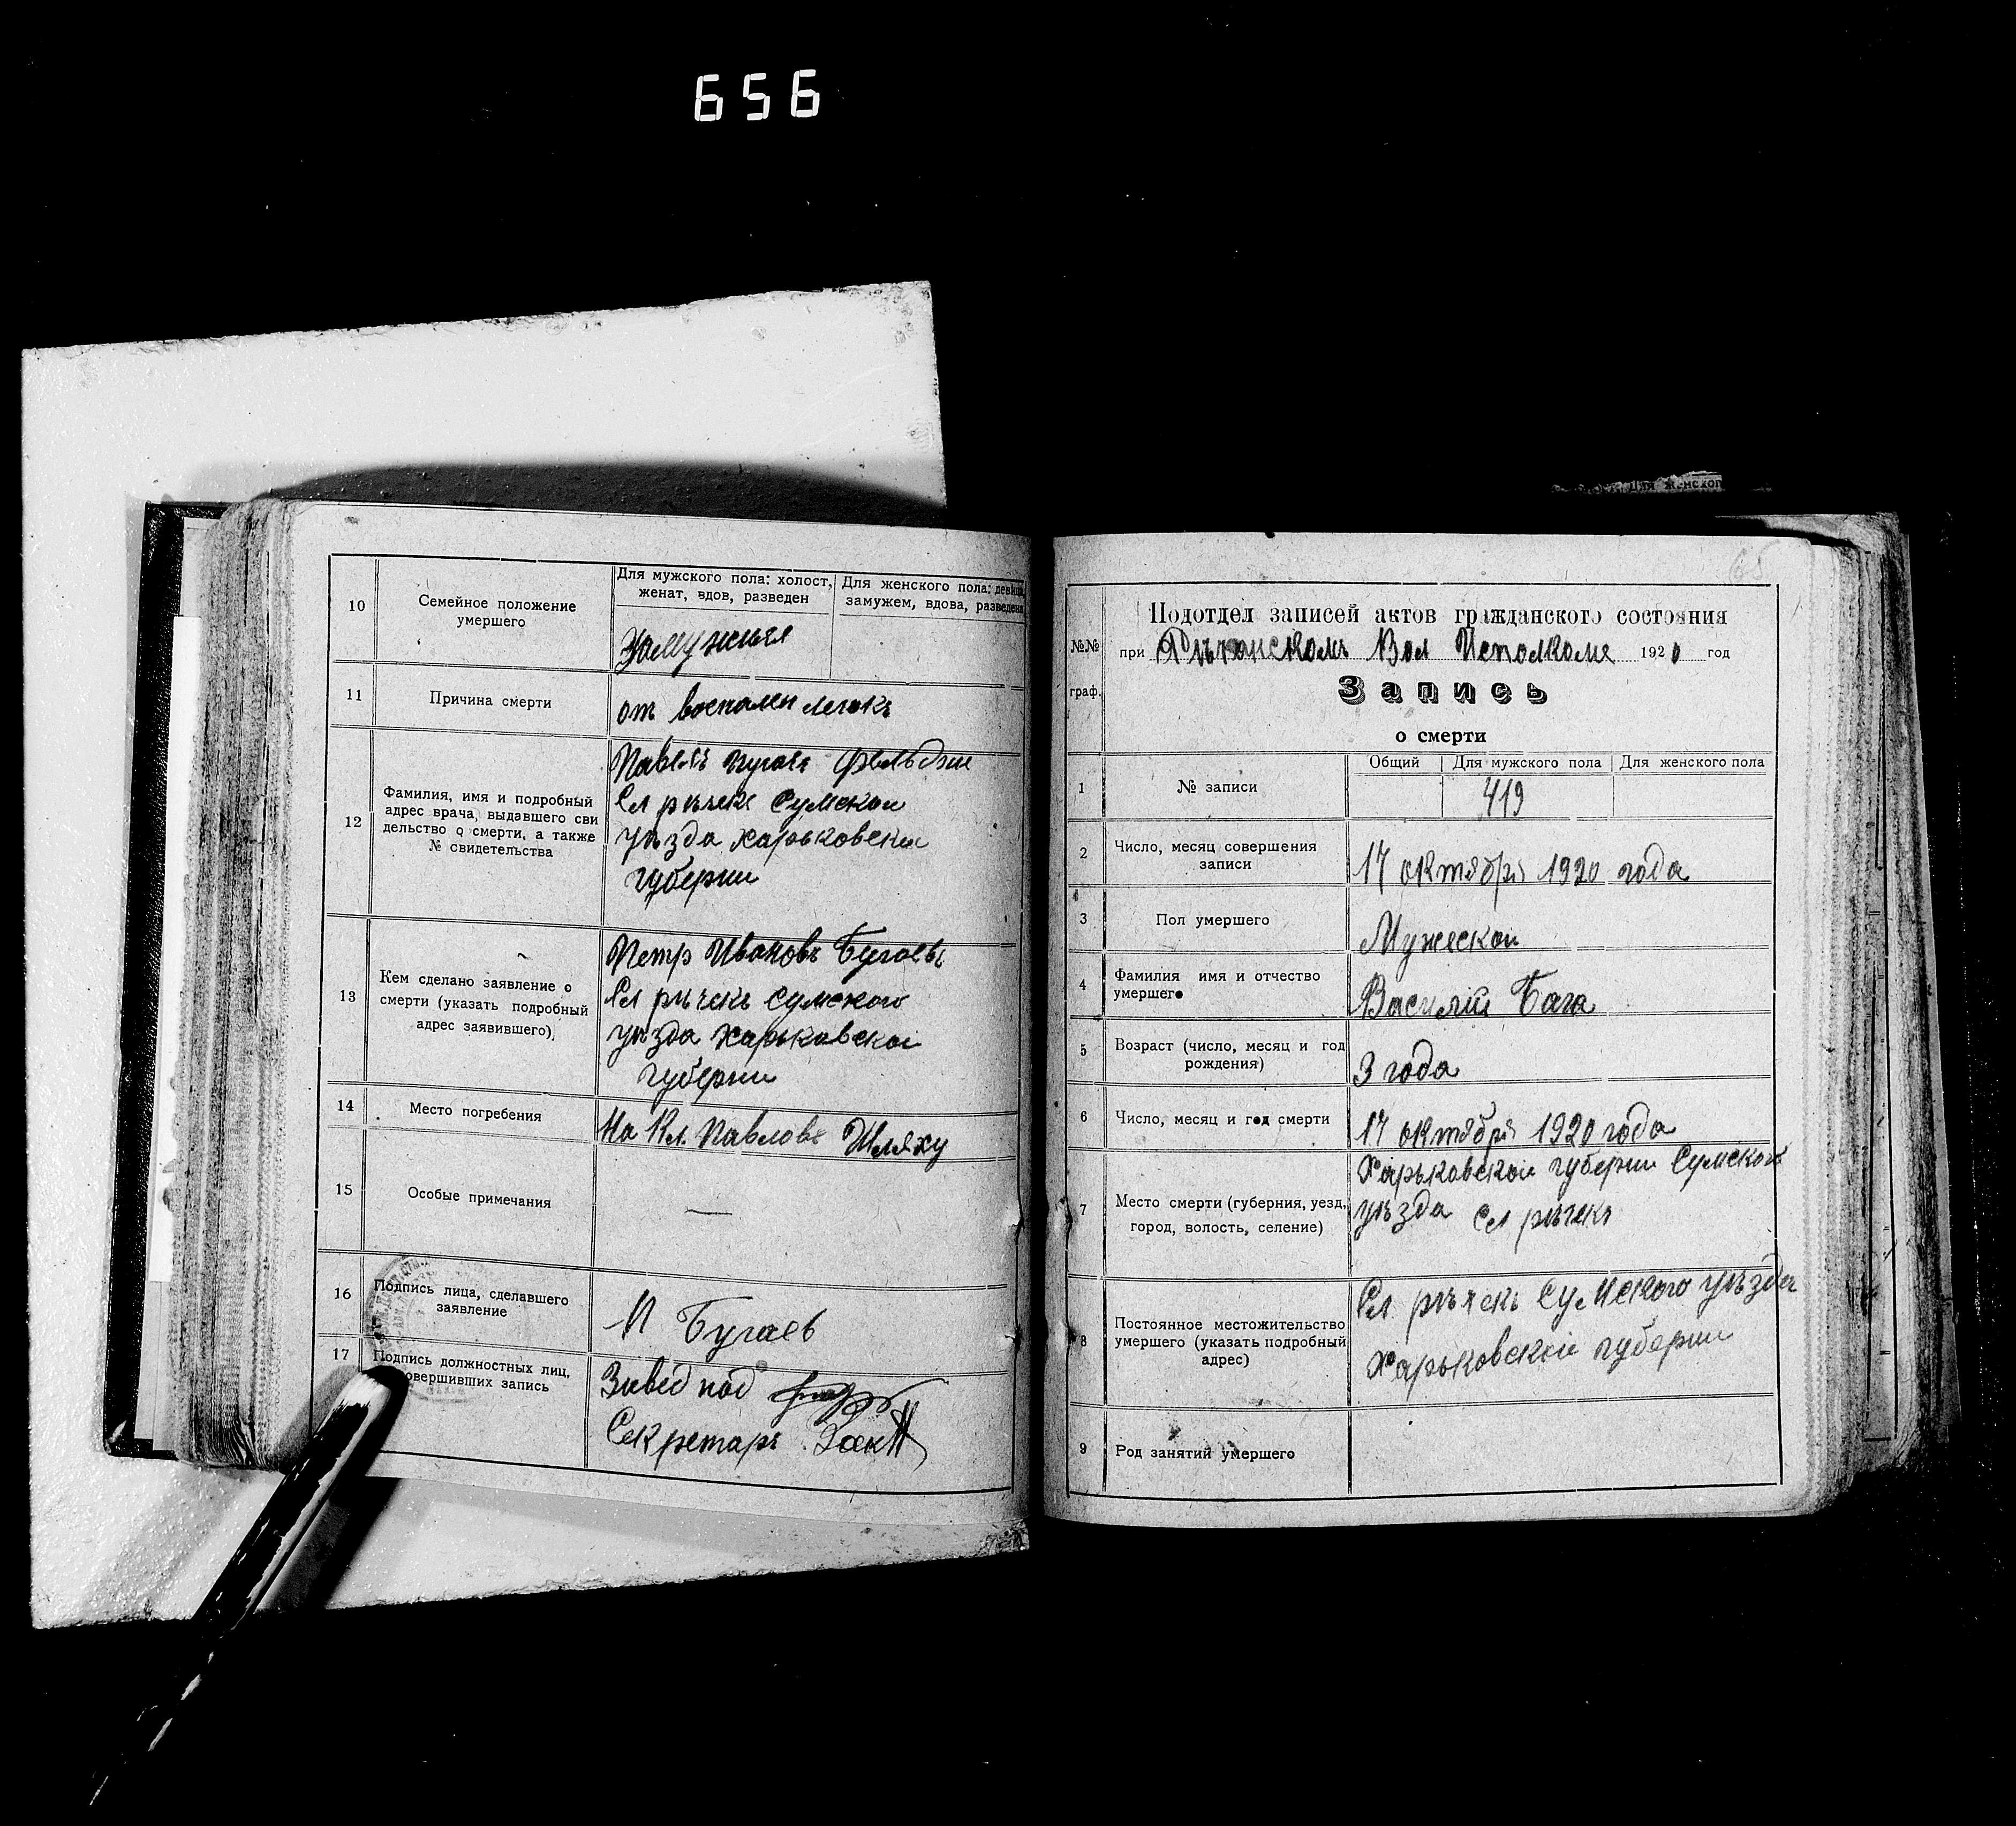 656
10
Семейное положение
умершего
Для мужского пола: холост,
женат, вдов, разведен
Для женского пола: девица,
замужем, вдова, разведена
Замужняя
11
Причина смерти
от воспален легкъ
12
Фамилия, имя и подробный
адрес врача, выдавшего сви
детельство о смерти, а также
№ свидетельства
Павелъ
Сл рѣчекъ Сумской
уѣзда харьковской
губерни
13
Кем сделано заявление о
смерти (указать подробный
адрес заявившего)
Петр Ивановъ Бугаевъ
Сл рѣчекъ Сумского
уѣзда харьковской
губерни
14
Место погребения
На Кл. Павловъ Шляху
15
Особые примечания
—
16
Подпись лица, сделавшего
заявление
П Бугаев
17
Подпись должностных лиц,
совершивших запись
Завед под
Секретарь
65
№№
граф.
Подотдел записей актов гражданского состояния
при Рѣчанскомъ Вол Исполкоме 1920 год
Запись
о смерти
1
№ записи
Общий
Для мужского пола
Для женского пола
419
2
Число, месяц совершения
записи
17 октября 1920 года
3
Пол умершего
Мужеской
4
Фамилия имя и отчество
умершего
Василий Бага
5
Возраст (число, месяц и год
рождения)
3 года
6
Число, месяц и год смерти
17 октября 1920 года
7
Место смерти (губерния, уезд,
город, волость, селение)
Харьковской губерни Сумской
уѣзда Сл рѣчекъ
8
Постоянное местожительство
умершего (указать подробный
адрес)
Сл рѣчекъ Сумского уѣзда
Харьковской губерни
9
Род занятий умершего